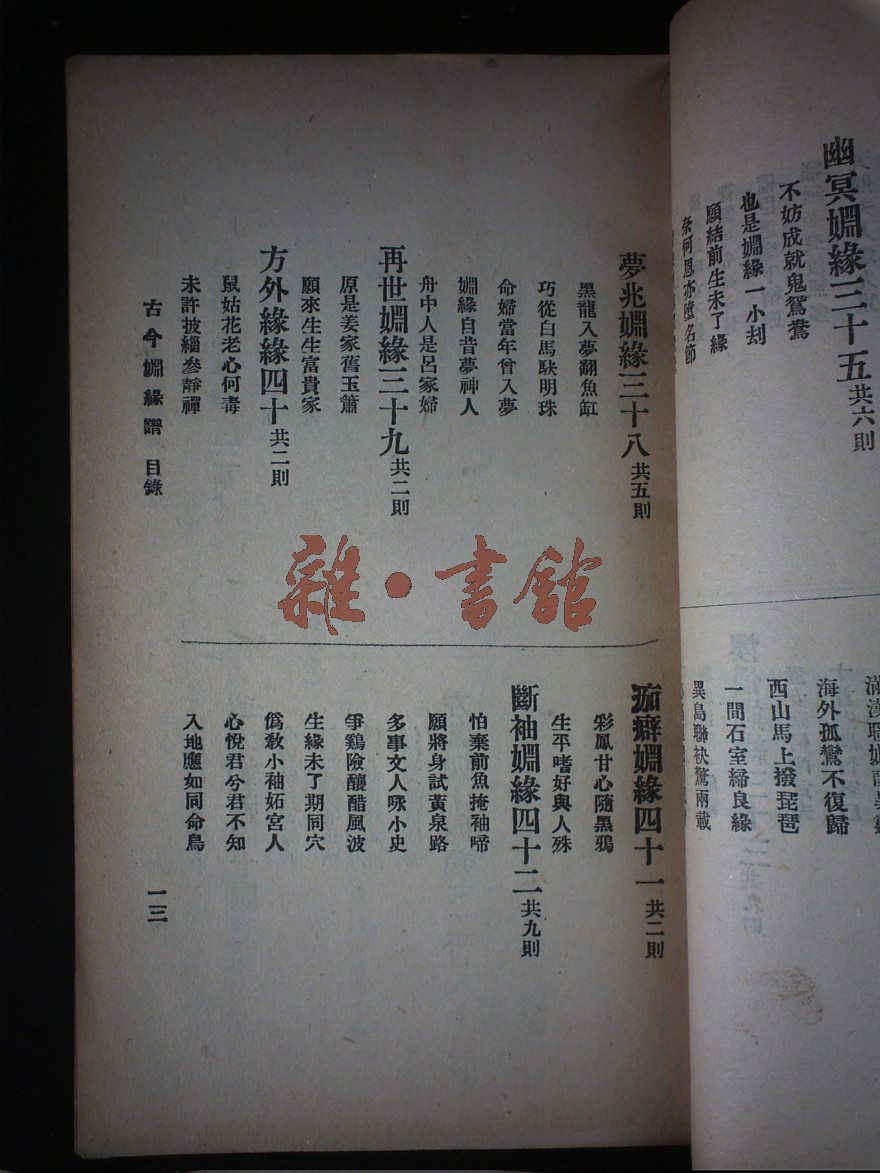 幽冥婣緣三十五共六則
不妨成就鬼鴛鴦
也是婣緣一小刦
願結前生未了緣
奈何恩亦墮名節
海外孤鸞不復歸
西山馬上撥琵琶
一間石室締良緣
異島聯袂驚兩載
夢兆婣緣三十八共五則
黑龍入夢翻魚缸
巧從白馬馱明珠
命婦當年曾入夢
婣緣自昔夢神人
舟中人是呂家婦
再世婣緣三十九共二則
原是姜家舊玉簫
願來生生富貴家
方外緣緣四十共二則
鼠姑花老心何毒
未許披緇參靜禪
痂癖婣緣四十一共二則
彩鳳甘心隨黑鴉
生平嗜好與人殊
斷袖婣緣四十二共九則
怕棄前魚掩袖啼
願將身試黃泉路
多事文人咏小史
爭鷄險釀醋風波
生緣未了期同穴
僞敎小袖妬宮人
心悅君兮君不知
入地應如同命鳥
古今婣緣譜 目錄
一三
雜·書館